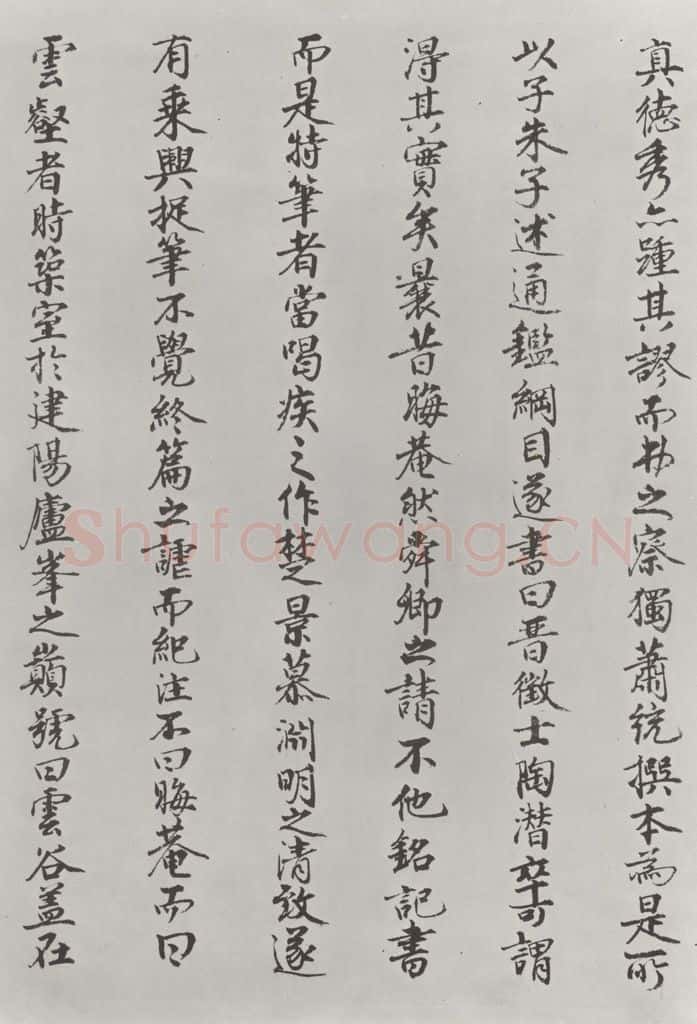 真德秀亦踵其謬而勿之察獨蕭統撰本為是所
以子朱子述通鑑綱目遂書曰晉徵士陶潛卒可謂
得其實矣曩昔晦菴然舜卿之請不他銘記書
而是特筆者當暍疾之作楚景慕淵明之清致遂
有乘興捉筆不覺終篇之謔而紀注不曰晦菴而曰
雲壑者時築室於建陽廬峯之巔號曰雲谷蓋在
Shufawang.CN